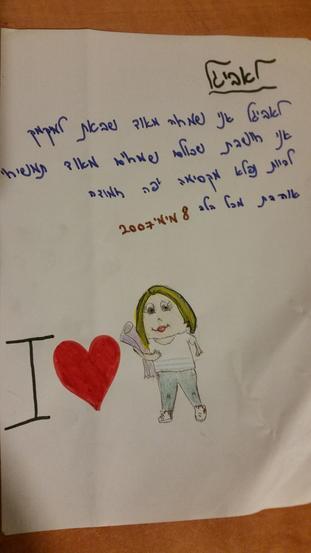 לאביגל
לאביגל אני שמחה מאוד שבאת
אני חושבת שכולם שמחים מאוד תמשיכי
להיות נפלא מקסימה יפה חמודה
אוהבת מכל הלב
I